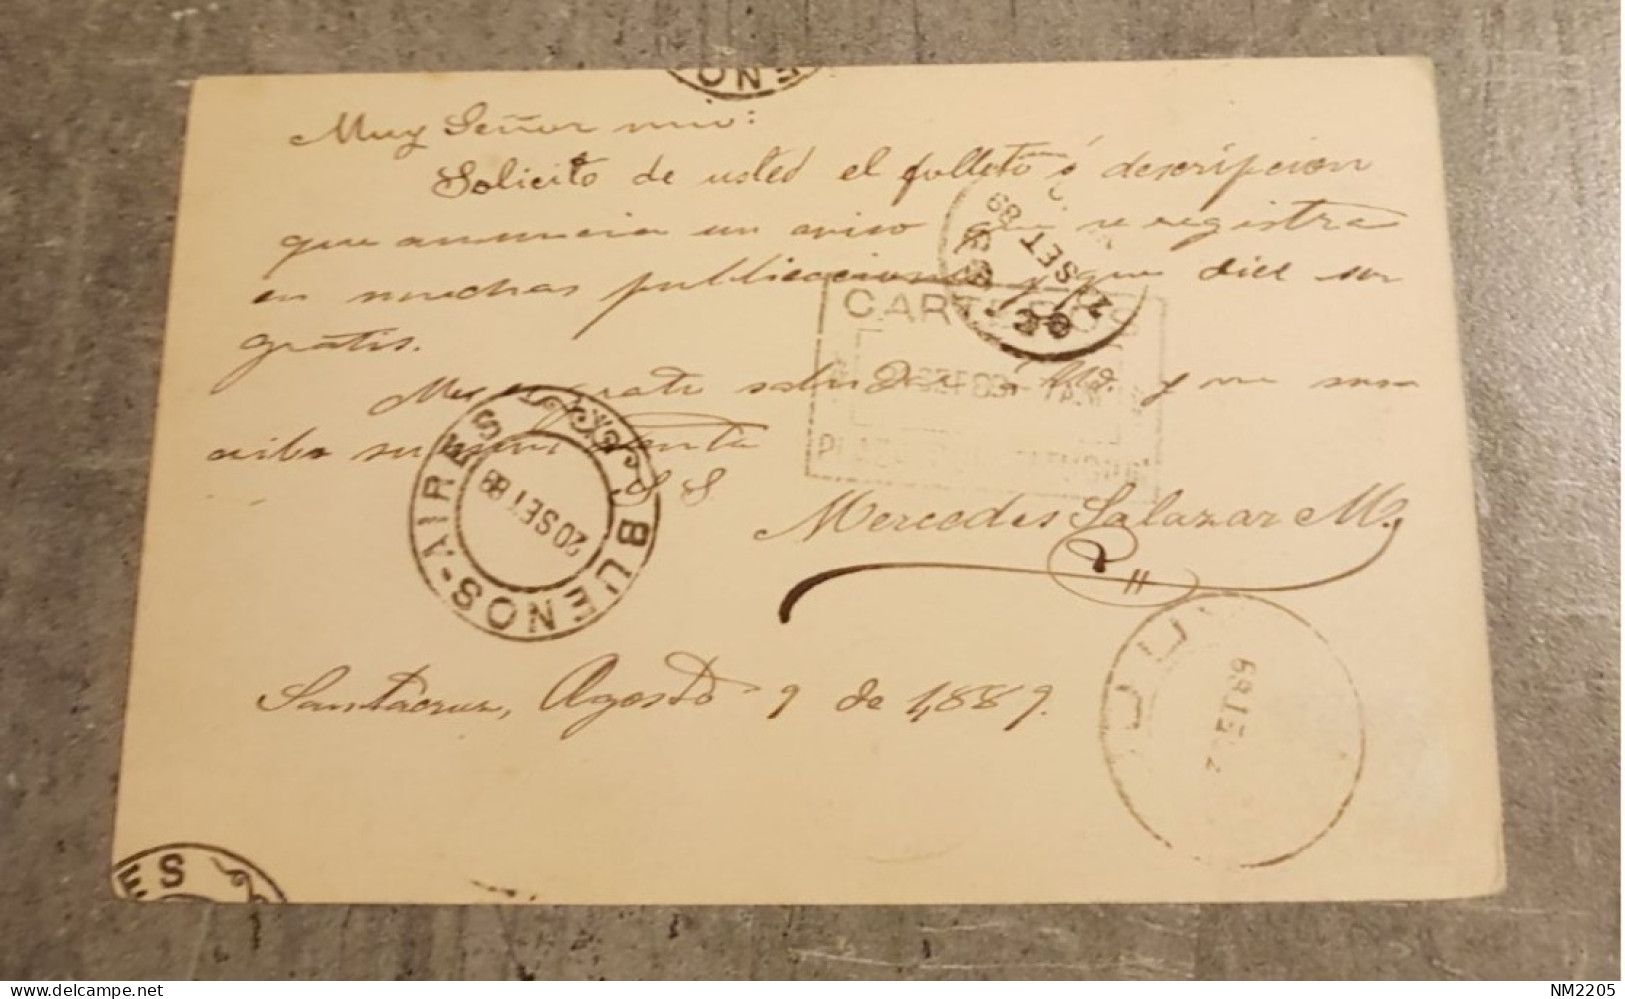 ENO
Muy Señor mio:
Solicito de usted el folleto ó descripcion
que anuncia un aviso que se registra
en muchas publicaciones y que dice ser
gratis.
Me es grato saludar á Ud. y me sus
cribo su atenta
S S
Mercedes Salazar M.
Santacruz, Agosto 9 de 1,889.
SET 89
CARTEROS
SET 89
PLAZA
BUENOS-AIRES
20 SET 89
JUJU
SET 89
ES
NM2205